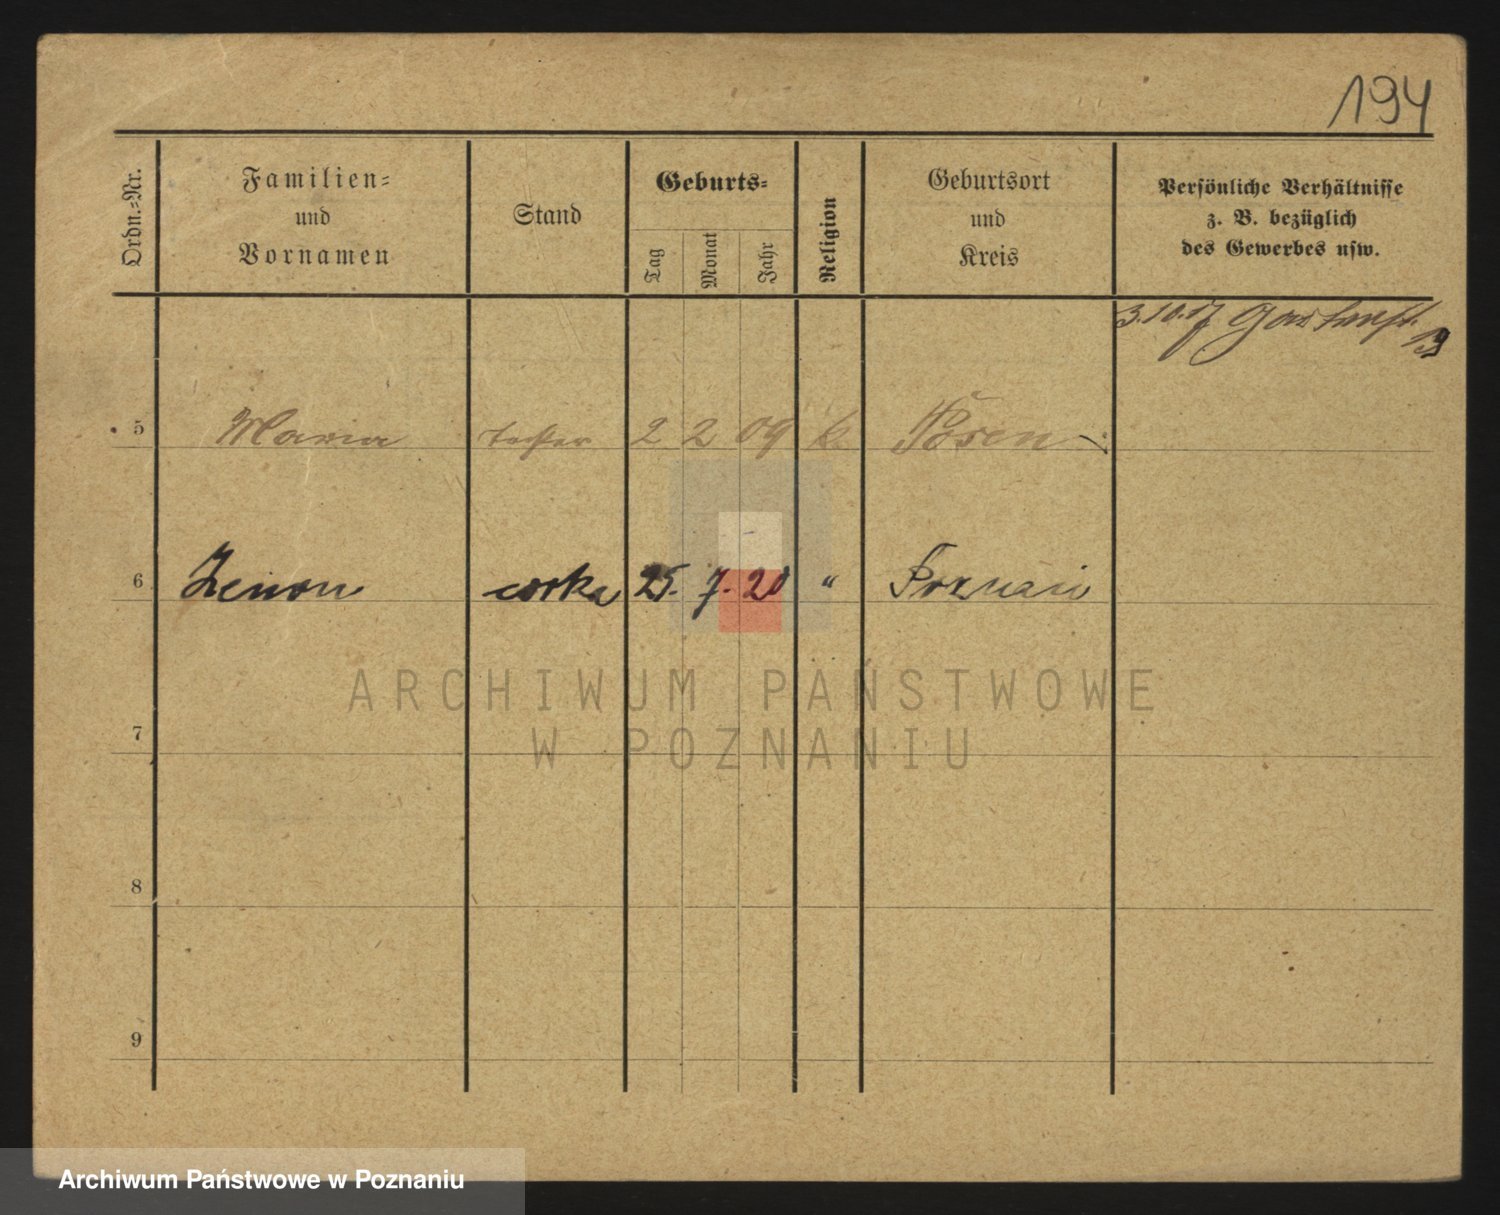 194
Ordn.-Nr.
Familien-
und
Vornamen
Stand
Geburts-
Tag
Monat
Jahr
Religion
Geburtsort
und
Kreis
Persönliche Verhältnisse
z. B. bezüglich
des Gewerbes usw.
3.10.17
5 Maria tochter 2 2 09 k. Posen
6 Zenon corka 25. 7. 20 " Poznań
ARCHIWUM PAŃSTWOWE
W POZNANIU
7
8
9
Archiwum Państwowe w Poznaniu